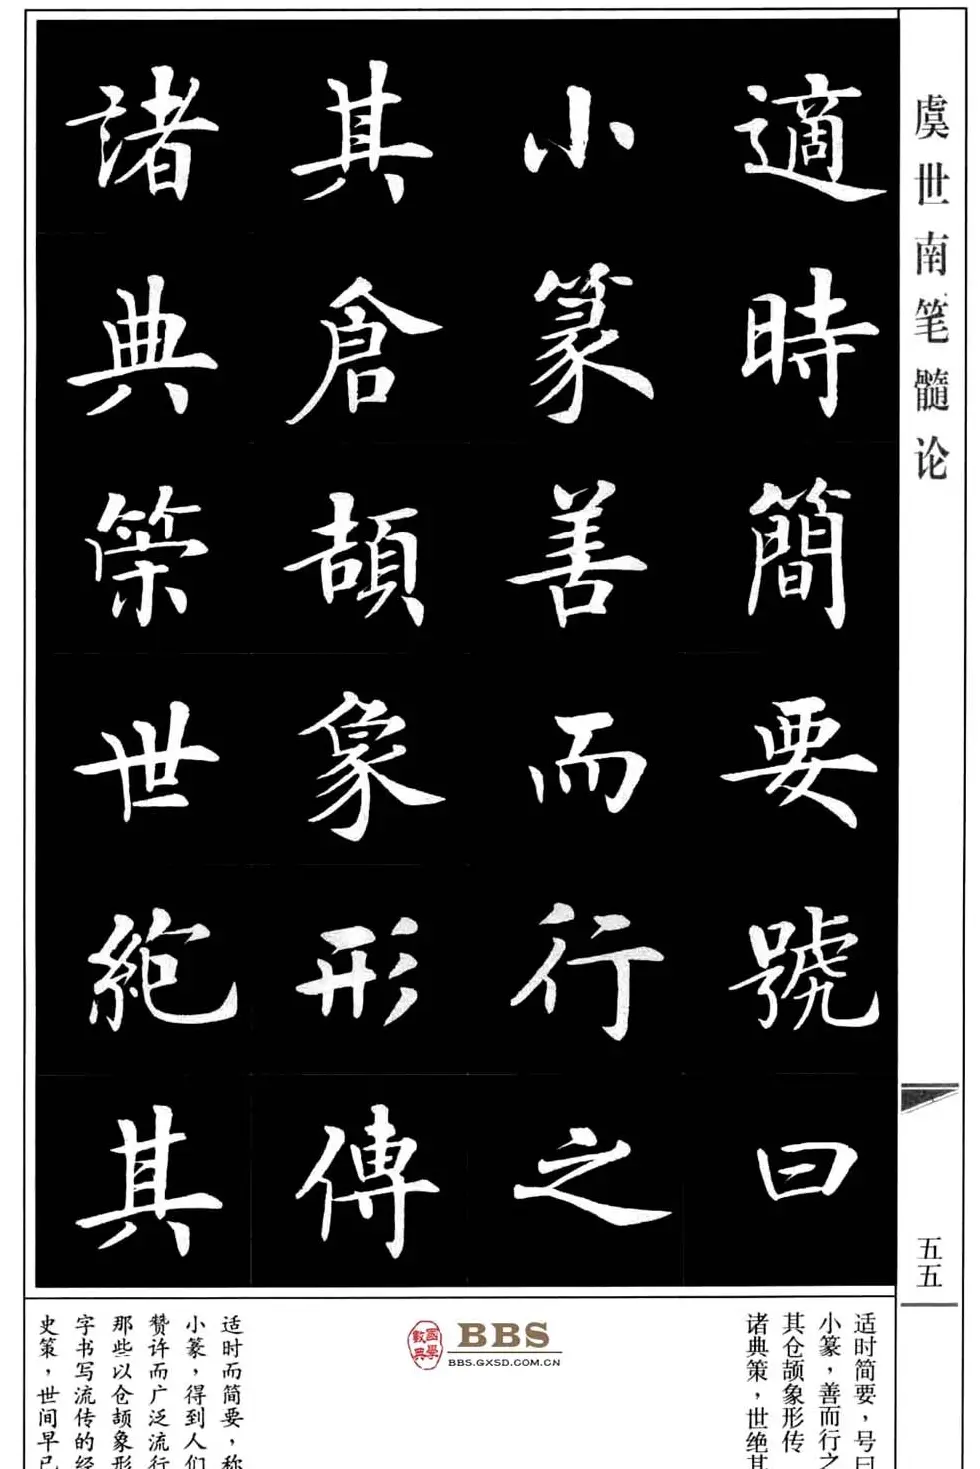 虞世南笔髓论
適時簡要號曰
小篆善而行之
其倉頡象形傳
諸典策世絶其
五五
适时简要，号曰
小篆，善而行之
其仓颉象形传
诸典策，世绝其
BBS
BBS.GXSD.COM.CN
國學數典
适时而简要，称
小篆，得到人们
赞许而广泛流行
那些以仓颉象形
字书写流传的经
史策，世间早已